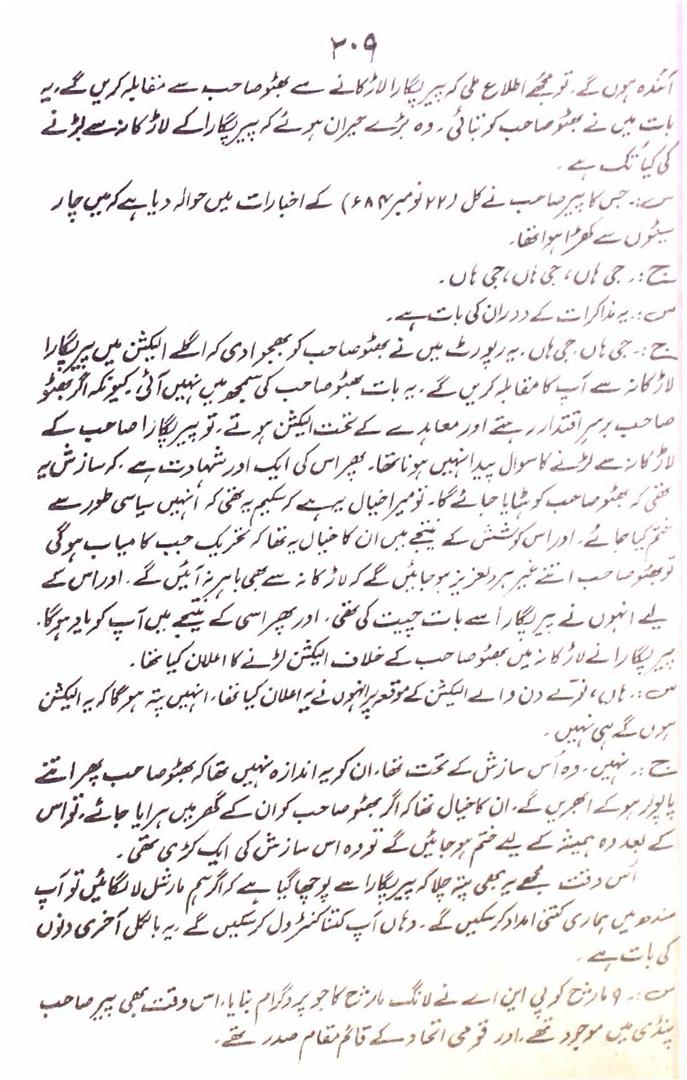 ۲۰۹
آئندہ ہوں گے، تو مجھے اطلاع ملی کہ پیر پگارا لاڑکانے سے بھٹو صاحب سے مقابلہ کریں گے، یہ
بات میں نے بھٹو صاحب کو بتائی۔ وہ بڑے حیران ہوئے کہ پیر پگارا کے لاڑکانہ سے لڑنے
کی کیا تک ہے۔
س:۔ جس کا پیر صاحب نے کل (۲۲ نومبر ۸۴ء) کے اخبارات میں حوالہ دیا ہے کہ میں چار
سیٹوں سے کھڑا ہوا تھا۔
ج:۔ جی ہاں، جی ہاں، جی ہاں۔
س:۔ یہ مذاکرات کے دوران کی بات ہے۔
ج:۔ جی ہاں، جی ہاں، یہ رپورٹ میں نے بھٹو صاحب کو بھجوا دی کہ اگلے الیکشن میں پیر پگارا
لاڑکانہ سے آپ کا مقابلہ کریں گے۔ یہ بات بھٹو صاحب کی سمجھ میں نہیں آئی، کیونکہ اگر بھٹو
صاحب برسر اقتدار رہتے اور معاہدے کے تحت الیکشن ہوتے، تو پیر پگارا صاحب کے
لاڑکانہ سے لڑنے کا سوال پیدا نہیں ہونا تھا۔ پھر اس کی ایک اور شہادت ہے، کہ سازش یہ
تھی کہ بھٹو صاحب کو ہٹایا جائے گا۔ تو میرا خیال یہ ہے کہ سکیم یہ تھی کہ انہیں سیاسی طور سے
ختم کیا جائے۔ اور اس کوشش کے نتیجے میں ان کا خیال یہ تھا کہ تحریک جب کامیاب ہو گی
تو بھٹو صاحب اتنے غیر ہردلعزیز ہو جائیں گے کہ لاڑکانہ سے بھی باہر نہ آئیں گے۔ اور اس کے
لیے انہوں نے پیر پگارا سے بات چیت کی تھی، اور پھر اسی کے نتیجے میں آپ کو یاد ہو گا،
پیر پگارا نے لاڑکانہ میں بھٹو صاحب کے خلاف الیکشن لڑنے کا اعلان کیا تھا۔
س:۔ ہاں، نوے دن والے الیکشن کے موقع پر انہوں نے یہ اعلان کیا تھا، انہیں پتہ ہو گا کہ یہ الیکشن
ہوں گے ہی نہیں۔
ج:۔ نہیں، وہ اُس سازش کے تحت تھا، ان کو یہ اندازہ نہیں تھا کہ بھٹو صاحب پھر اتنے
پاپولر ہو کے ابھریں گے، ان کا خیال تھا کہ اگر بھٹو صاحب کو ان کے گھر میں ہرایا جائے، تو اس
کے بعد وہ ہمیشہ کے لیے ختم ہو جائیں گے تو وہ اس سازش کی ایک کڑی تھی۔
اُس وقت مجھے یہ بھی پتہ چلا کہ پیر پگارا سے پوچھا گیا ہے کہ اگر ہم مارشل لا لگائیں تو آپ
سندھ میں ہماری کتنی امداد کر سکیں گے۔ وہاں آپ کتنا کنٹرول کر سکیں گے۔ یہ بالکل آخری دنوں
کی بات ہے۔
س:۔ ۹ مارچ کو پی این اے نے لانگ مارچ کا جو پروگرام بنایا، اس وقت بھی پیر صاحب
پنڈی میں موجود تھے، اور قومی اتحاد کے قائم مقام صدر تھے۔